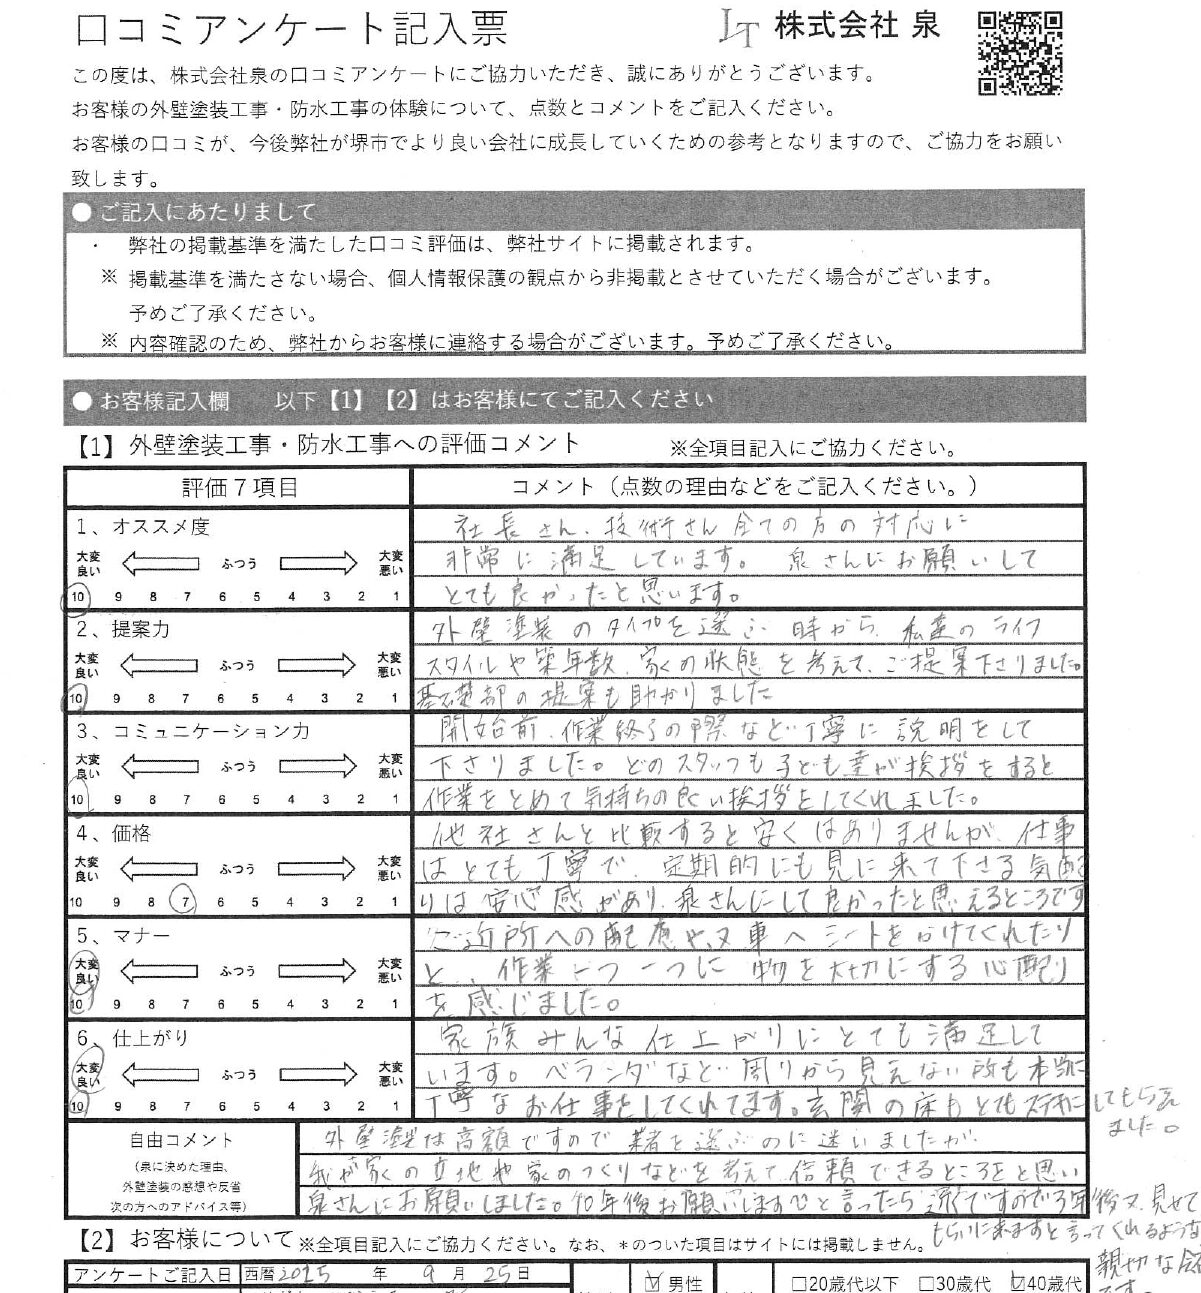 口コミアンケート記入票
LT 株式会社 泉
この度は、株式会社泉の口コミアンケートにご協力いただき、誠にありがとうございます。
お客様の外壁塗装工事・防水工事の体験について、点数とコメントをご記入ください。
お客様の口コミが、今後弊社が堺市でより良い会社に成長していくための参考となりますので、ご協力をお願い
致します。
● ご記入にあたりまして
・ 弊社の掲載基準を満たした口コミ評価は、弊社サイトに掲載されます。
※ 掲載基準を満たさない場合、個人情報保護の観点から非掲載とさせていただく場合がございます。
予めご了承ください。
※ 内容確認のため、弊社からお客様に連絡する場合がございます。予めご了承ください。
● お客様記入欄 以下【1】【2】はお客様にてご記入ください
【1】外壁塗装工事・防水工事への評価コメント ※全項目記入にご協力ください。
評価7項目 コメント（点数の理由などをご記入ください。）
1、オススメ度
大変良い ふつう 大変悪い
10 9 8 7 6 5 4 3 2 1
社長さん、技術さん全ての方の対応に
非常に満足しています。 泉さんにお願いして
とても良かったと思います。
2、提案力
大変良い ふつう 大変悪い
10 9 8 7 6 5 4 3 2 1
外壁塗装のタイプを選ぶ時から、私達のライフ
スタイルや築年数、家の状態を考えて、ご提案下さりました。
基礎部の提案も助かりました
3、コミュニケーション力
大変良い ふつう 大変悪い
10 9 8 7 6 5 4 3 2 1
開始前、作業終了の際など丁寧に説明をして
下さりました。どのスタッフも子ども達が挨拶をすると
作業をとめて気持ちの良い挨拶をしてくれました。
4、価格
大変良い ふつう 大変悪い
10 9 8 7 6 5 4 3 2 1
他社さんと比較すると安くはありませんが、仕事
はとても丁寧で、定期的にも見に来て下さる気配
りは安心感があり、泉さんにして良かったと思えるところです
5、マナー
大変良い ふつう 大変悪い
10 9 8 7 6 5 4 3 2 1
ご近所への配慮や、又車へシートをかけてくれたり
と、作業一つ一つに物を大切にする心配り
を感じました。
6、仕上がり
大変良い ふつう 大変悪い
10 9 8 7 6 5 4 3 2 1
家族みんな仕上がりにとても満足して
います。ベランダなど周りから見えない所も本当に
丁寧なお仕事をしてくれてます。玄関の床もとてもステキにしてもらえ
ました。
自由コメント
（泉に決めた理由、
外壁塗装の感想や反省
次の方へのアドバイス等）
外壁塗装は高額ですので業者を選ぶのに迷いましたが、
我が家の立地や家のつくりなどを考えて信頼できるところをと思い
泉さんにお願いしました。10年後お願いしますと言ったら遠くですので3年後又、見せて
もらいに来ますと言ってくれるような
親切な
です。
【2】お客様について ※全項目記入にご協力ください。なお、＊のついた項目はサイトには掲載しません。
アンケートご記入日 西暦 2015 年 9 月 25 日
男性 20歳代以下 30歳代 40歳代